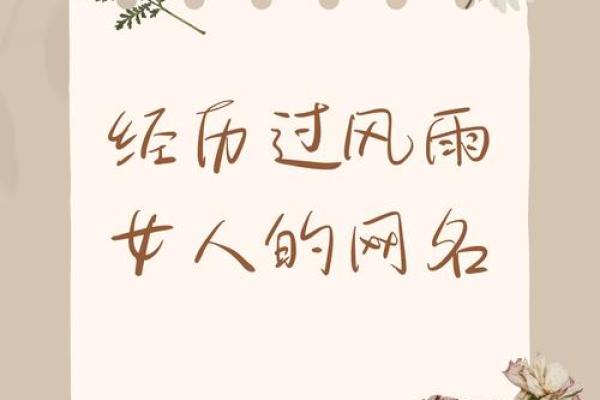 经历过风雨
女人的网名